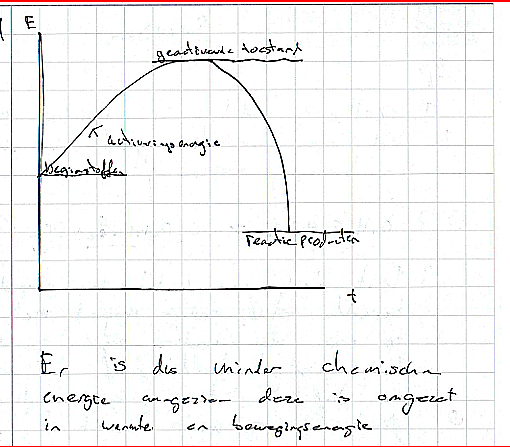 E
geactiveerde toestant
activeringsenergie
beginstoffen
reactie producten
t
Er is dus minder chemische
energie aangezien deze is omgezet
in warmte en bewegingsenergie